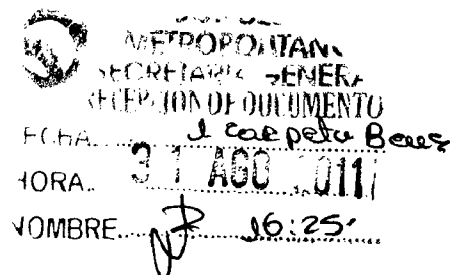 METROPOLITAN
SECRETARIA GENERA
RECEPCION DE DOCUMENTO
FECHA 1 carpeta Beng
31 AGO 2011
HORA
NOMBRE 16:25'